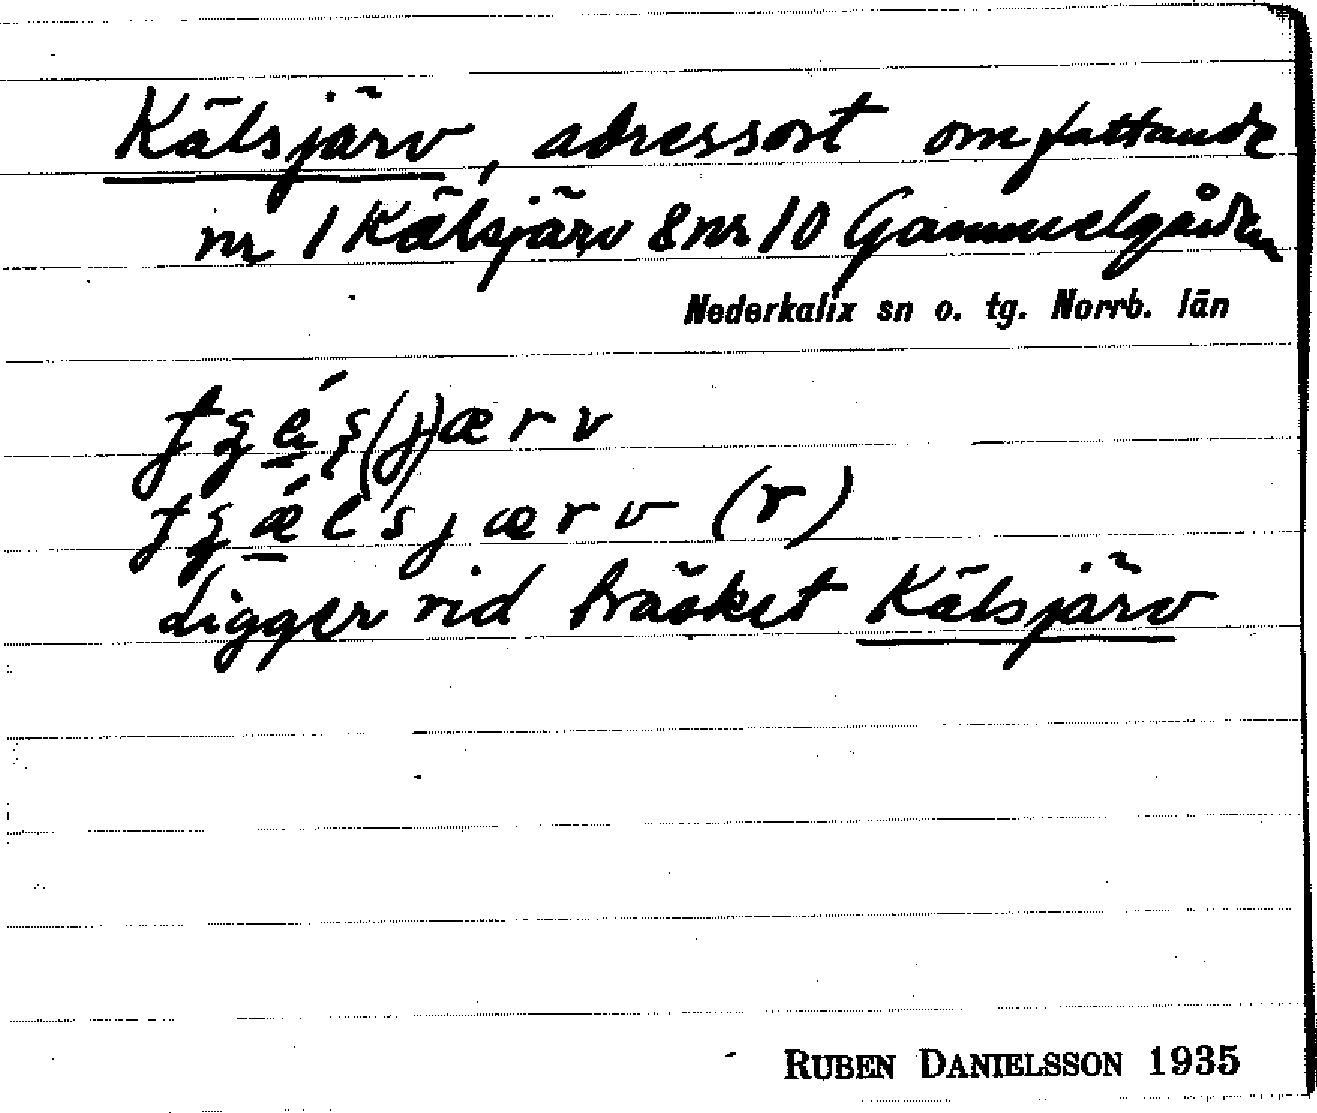 Kälsjärv, adressort omfattande
nr 1 Kälsjärv & nr 10 Gammelgården
Nederkalix sn o. tg. Norrb. län
(j)ærv
sjærv (r)
Ligger vid träsket Kälsjärv
RUBEN DANIELSSON 1935